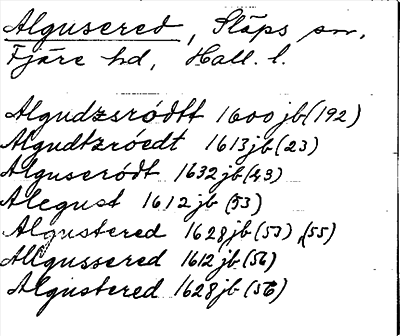 Algusered, Släps sn,
Fjäre hd, Hall. l.
Algudzsródtt 1600 jb (192)
Algudtzróedt 1613 jb (23)
Alguseródt 1632 jb (43)
Alegust 1612 jb (53)
Algustered 1628 jb (53) (55)
Allgussered 1612 jb (56)
Algustered 1628 jb (56)